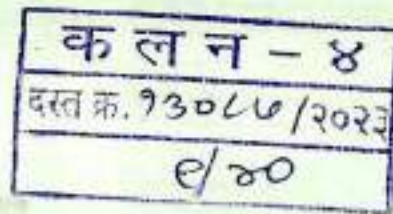 क ल न - ४
दस्त क्र. १३०८७/२०२३
९/४०